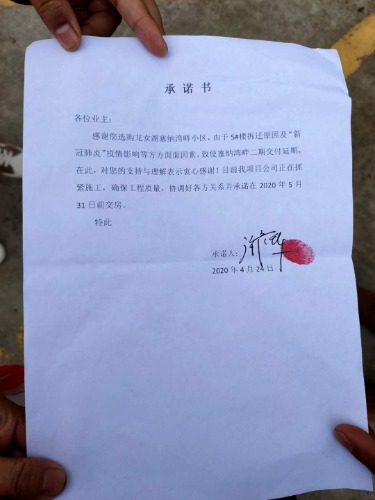 承诺书
各位业主：
感谢您选购龙女湖塞纳湾畔小区，由于 5#楼拆迁原因及“新
冠肺炎”疫情影响等方方面面因素，致使塞纳湾畔二期交付延期，
在此，对您的支持与理解表示衷心感谢！目前我项目公司正在抓
紧施工，确保工程质量，协调好各方关系并承诺在 2020 年 5 月
31 日前交房。
特此
承诺人：
2020 年 4 月 24 日